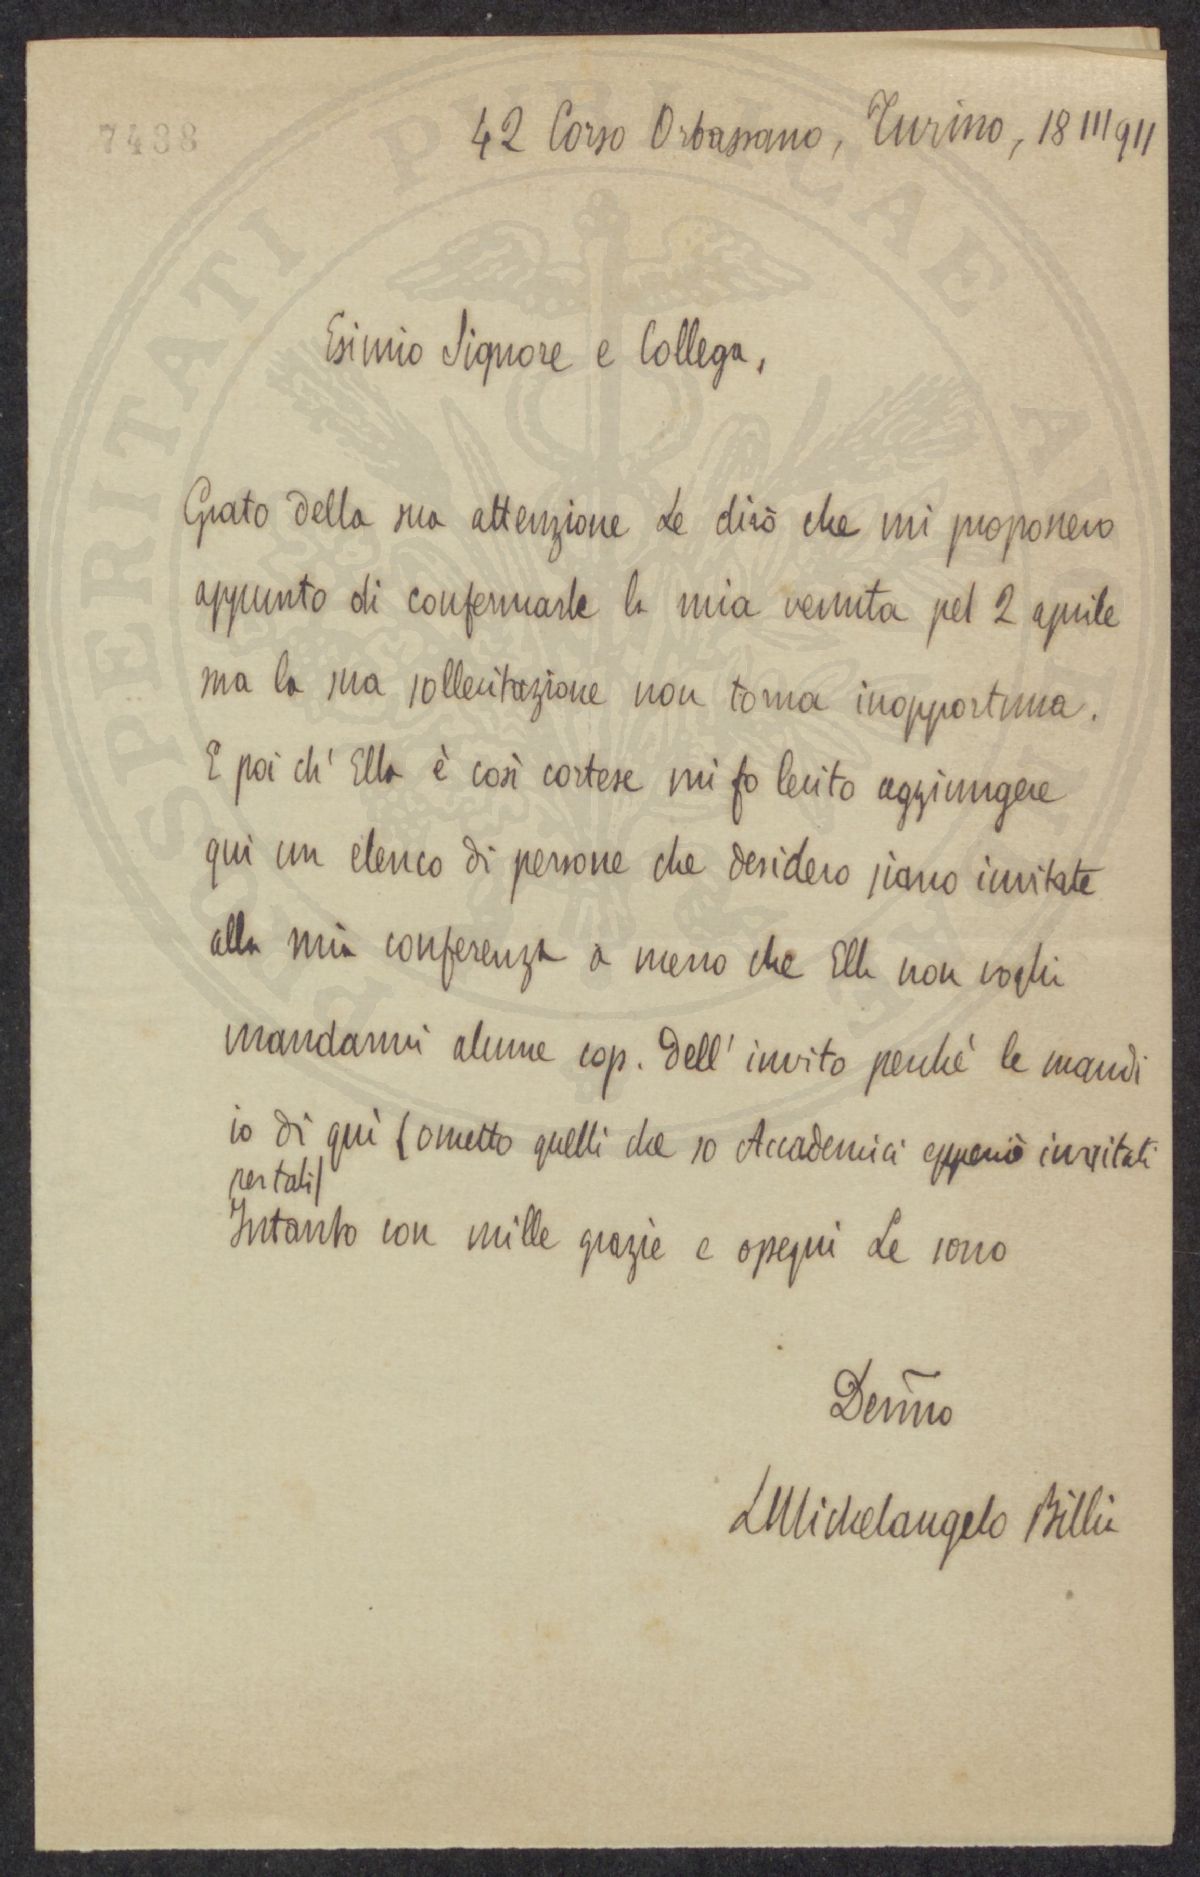 7438
42 Corso Orbassano, Turino, 18 III 911
Esimio Signore e Collega,
Grato della sua attenzione Le dirò che mi proponevo
appunto di confermarle la mia venuta pel 2 aprile
ma la sua sollecitazione non torna inopportuna.
E poi ch' Ella è così cortese mi fo lecito aggiungere
qui un elenco di persone che desidero siano invitate
alla mia conferenza a meno che Ella non voglia
mandarmi alcune cop. dell' invito perchè le mandi
io di quì (ometto quelli che so Accademici epperciò invitati
per tali)
Intanto con mille grazie e ossequi Le sono
Devmo
LMichelangelo Billia
PROSPERITATI PUBLICAE AUGENDAE